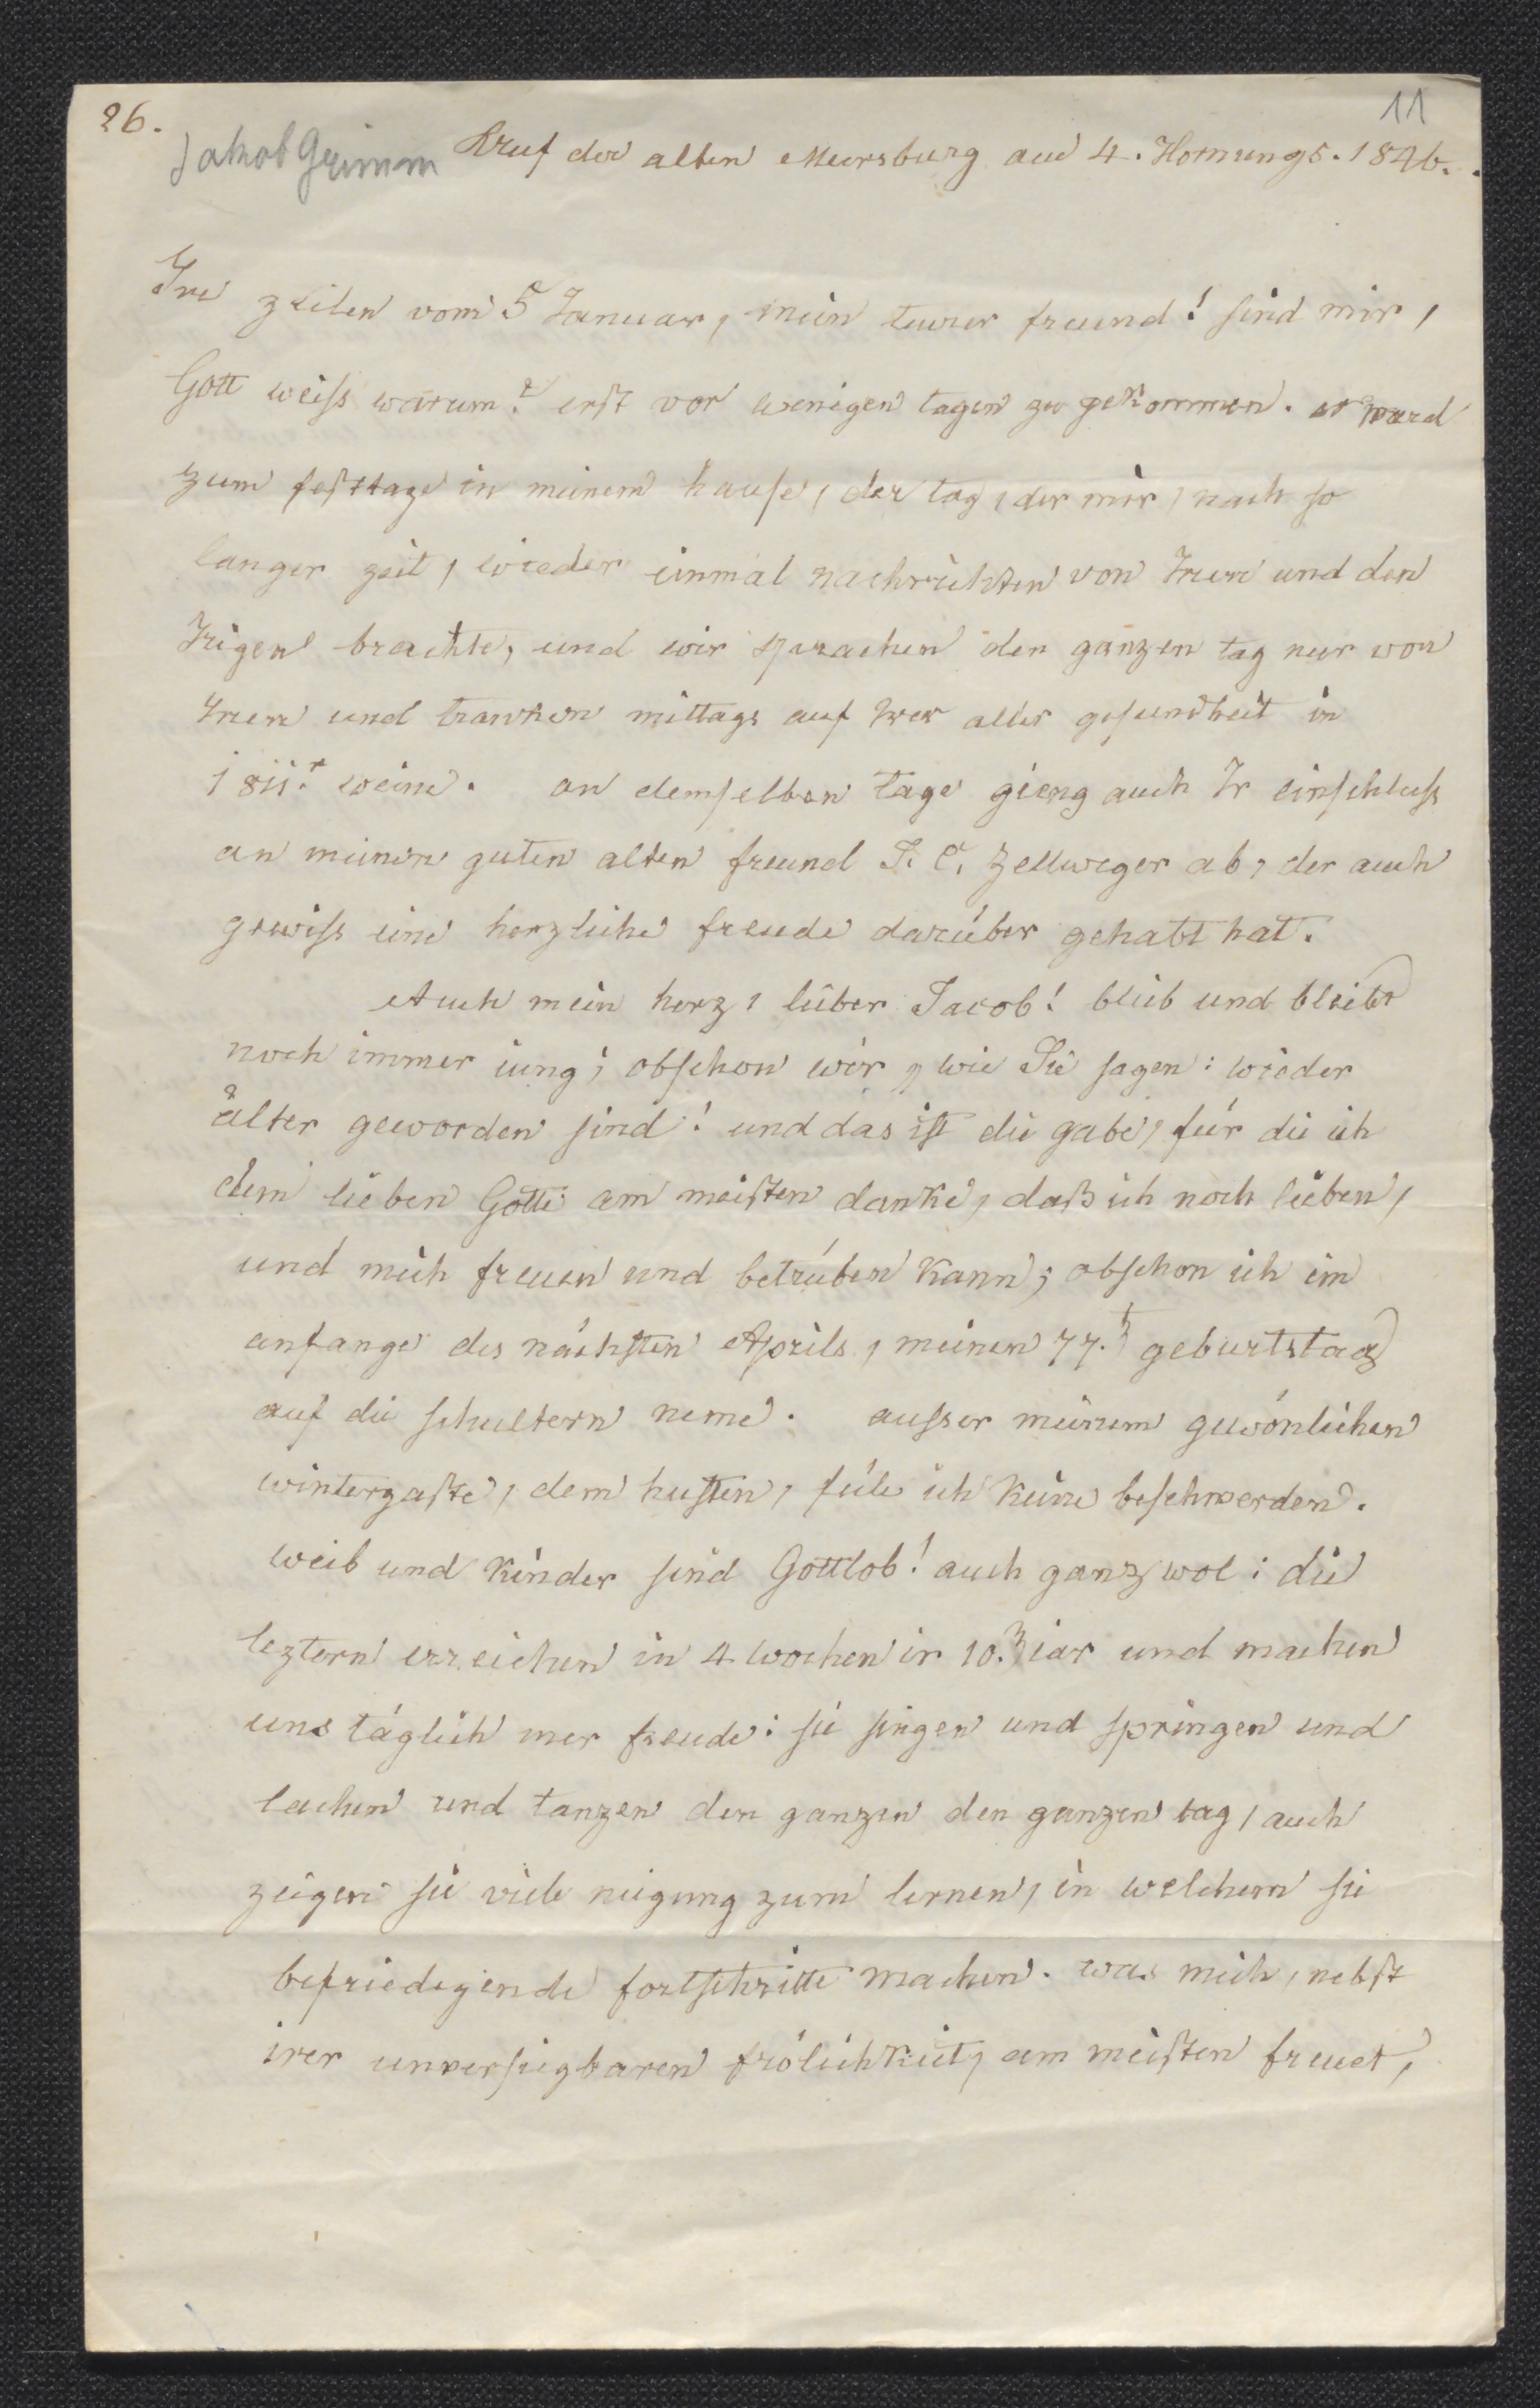 26.
11
Jakob Grimm
Auf der alten Meersburg am 4. Hornungs. 1846.
Ire zeilen vom 5 Januar, mein teurer freund! sind mir,
Gott weiss warum? erst vor wenigen tagen zu gekommen. er ward
zum festtage in meinem hause, der tag, der mir, nach so
langer zeit, wieder einmal nachrichten von Inen und den
Irigen brachte, und wir sprachen den ganzen tag nur von
Inen und tranken mittags auf Irer aller gesundheit in
1811.r weine. an demselben tage gieng auch Ir einschluss
an meinen guten alten freund J. C. Zellweger ab, der auch
gewiss eine herzliche freude darüber gehabt hat.
Auch mein herz, lieber Jacob! blieb und bleibt
noch immer iung; obschon wir, wie Sie sagen: wieder
älter geworden sind! und das ist die gabe, für die ich
dem lieben Gotte am meisten danke, daß ich noch lieben,
und mich freuen und betrüben kann; obschon ich im
anfange des nächsten Aprils, meinen 77.t geburtstag
auf die schultern neme. ausser meinem gewönlichen
wintergaste, dem husten, füle ich keine beschwerden.
weib und kinder sind Gottlob! auch ganz wol: die
leztern erreichen in 4 wochen ir 10. iar und machen
uns täglich mer freude: sie singen und springen und
lachen und tanzen den ganzen den ganzen tag, auch
zeigen sie viele neigung zum lernen, in welchem sie
befriedigende fortschritte machen. was mich, nebst
irer unversiegbaren frölichkeit, am meisten freuet,